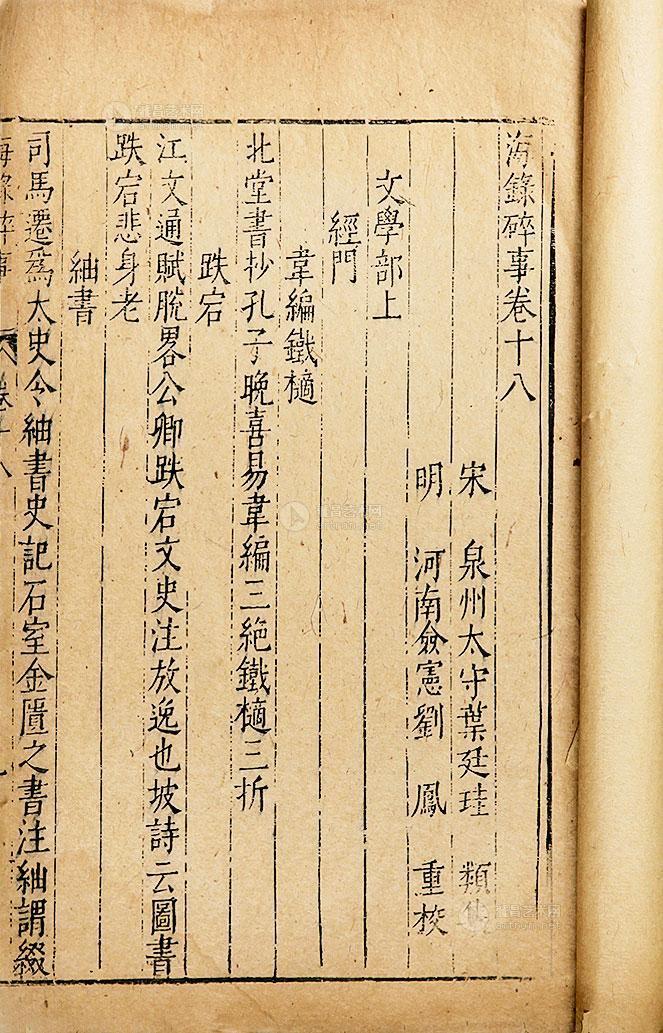 海錄碎事卷十八
宋 泉州太守葉廷珪 類集
明 河南僉憲劉 鳳 重校
文學部上
經門
韋編鐵擿
北堂書抄孔子晚喜易韋編三絶鐵擿三折
跌宕
江文通賦脫畧公卿跌宕文史注放逸也坡詩云圖書
跌宕悲身老
紬書
司馬遷爲太史令紬書史記石室金匱之書注紬謂綴
海錄碎事 卷十八
雅昌艺术网